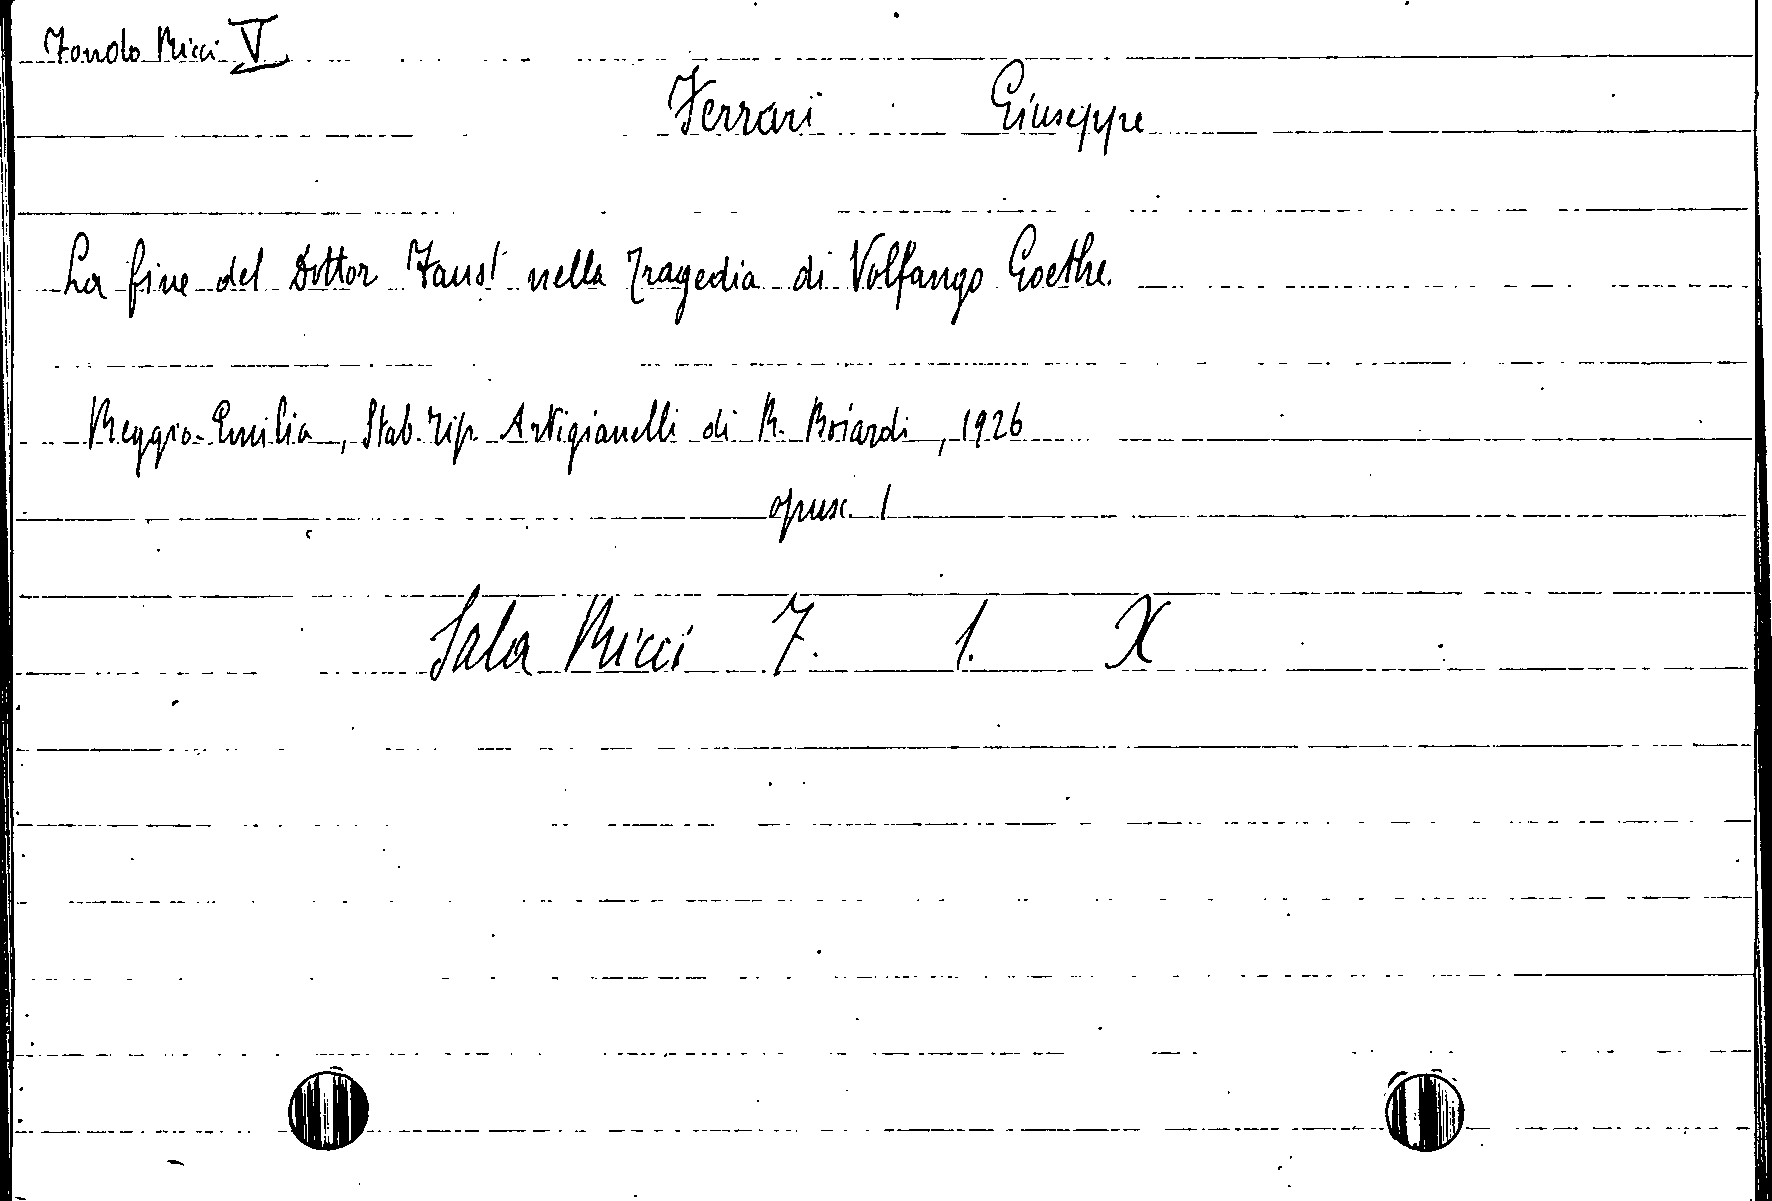 Fondo Ricci V
Ferrari Giuseppe
La fine del Dottor Faust nella Tragedia di Volfango Goethe.
Reggio-Emilia, Stab. Tip. Artigianelli di R. Boiardi, 1926
opusc. 1
Sala Ricci 7. 1. X